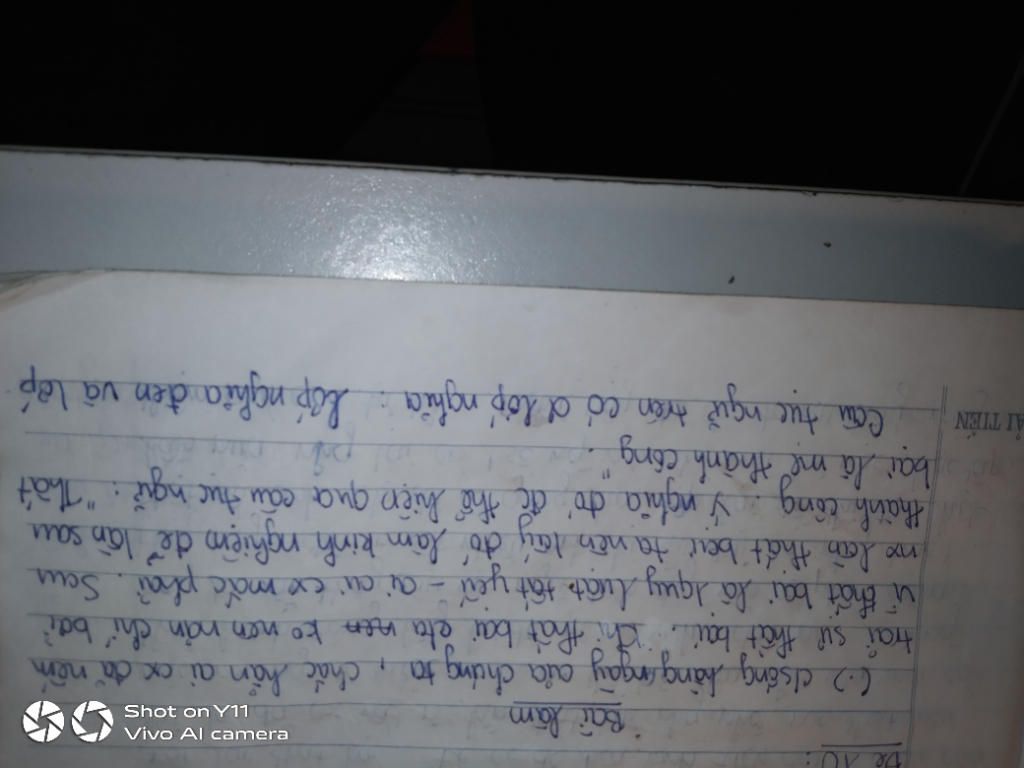 Đề 10:
Bài làm
(.) csống hàng ngày của chúng ta, chắc hẳn ai cx đã nếm
trải sự thất bại. Khi thất bại cta nên ko nên nản chí bởi
vì thất bại là quy luật tất yếu - ai ai cx mắc phải. Sau
mx lần thất bại ta nên lấy đó làm kinh nghiệm để lần sau
thành công. Ý nghĩa đó đc thể hiện qua câu tục ngữ: "Thất
bại là mẹ thành công".
Câu tục ngữ trên có 2 lớp nghĩa: Lớp nghĩa đen và lớp
ẢI TIẾN
Shot on Y11
Vivo AI camera